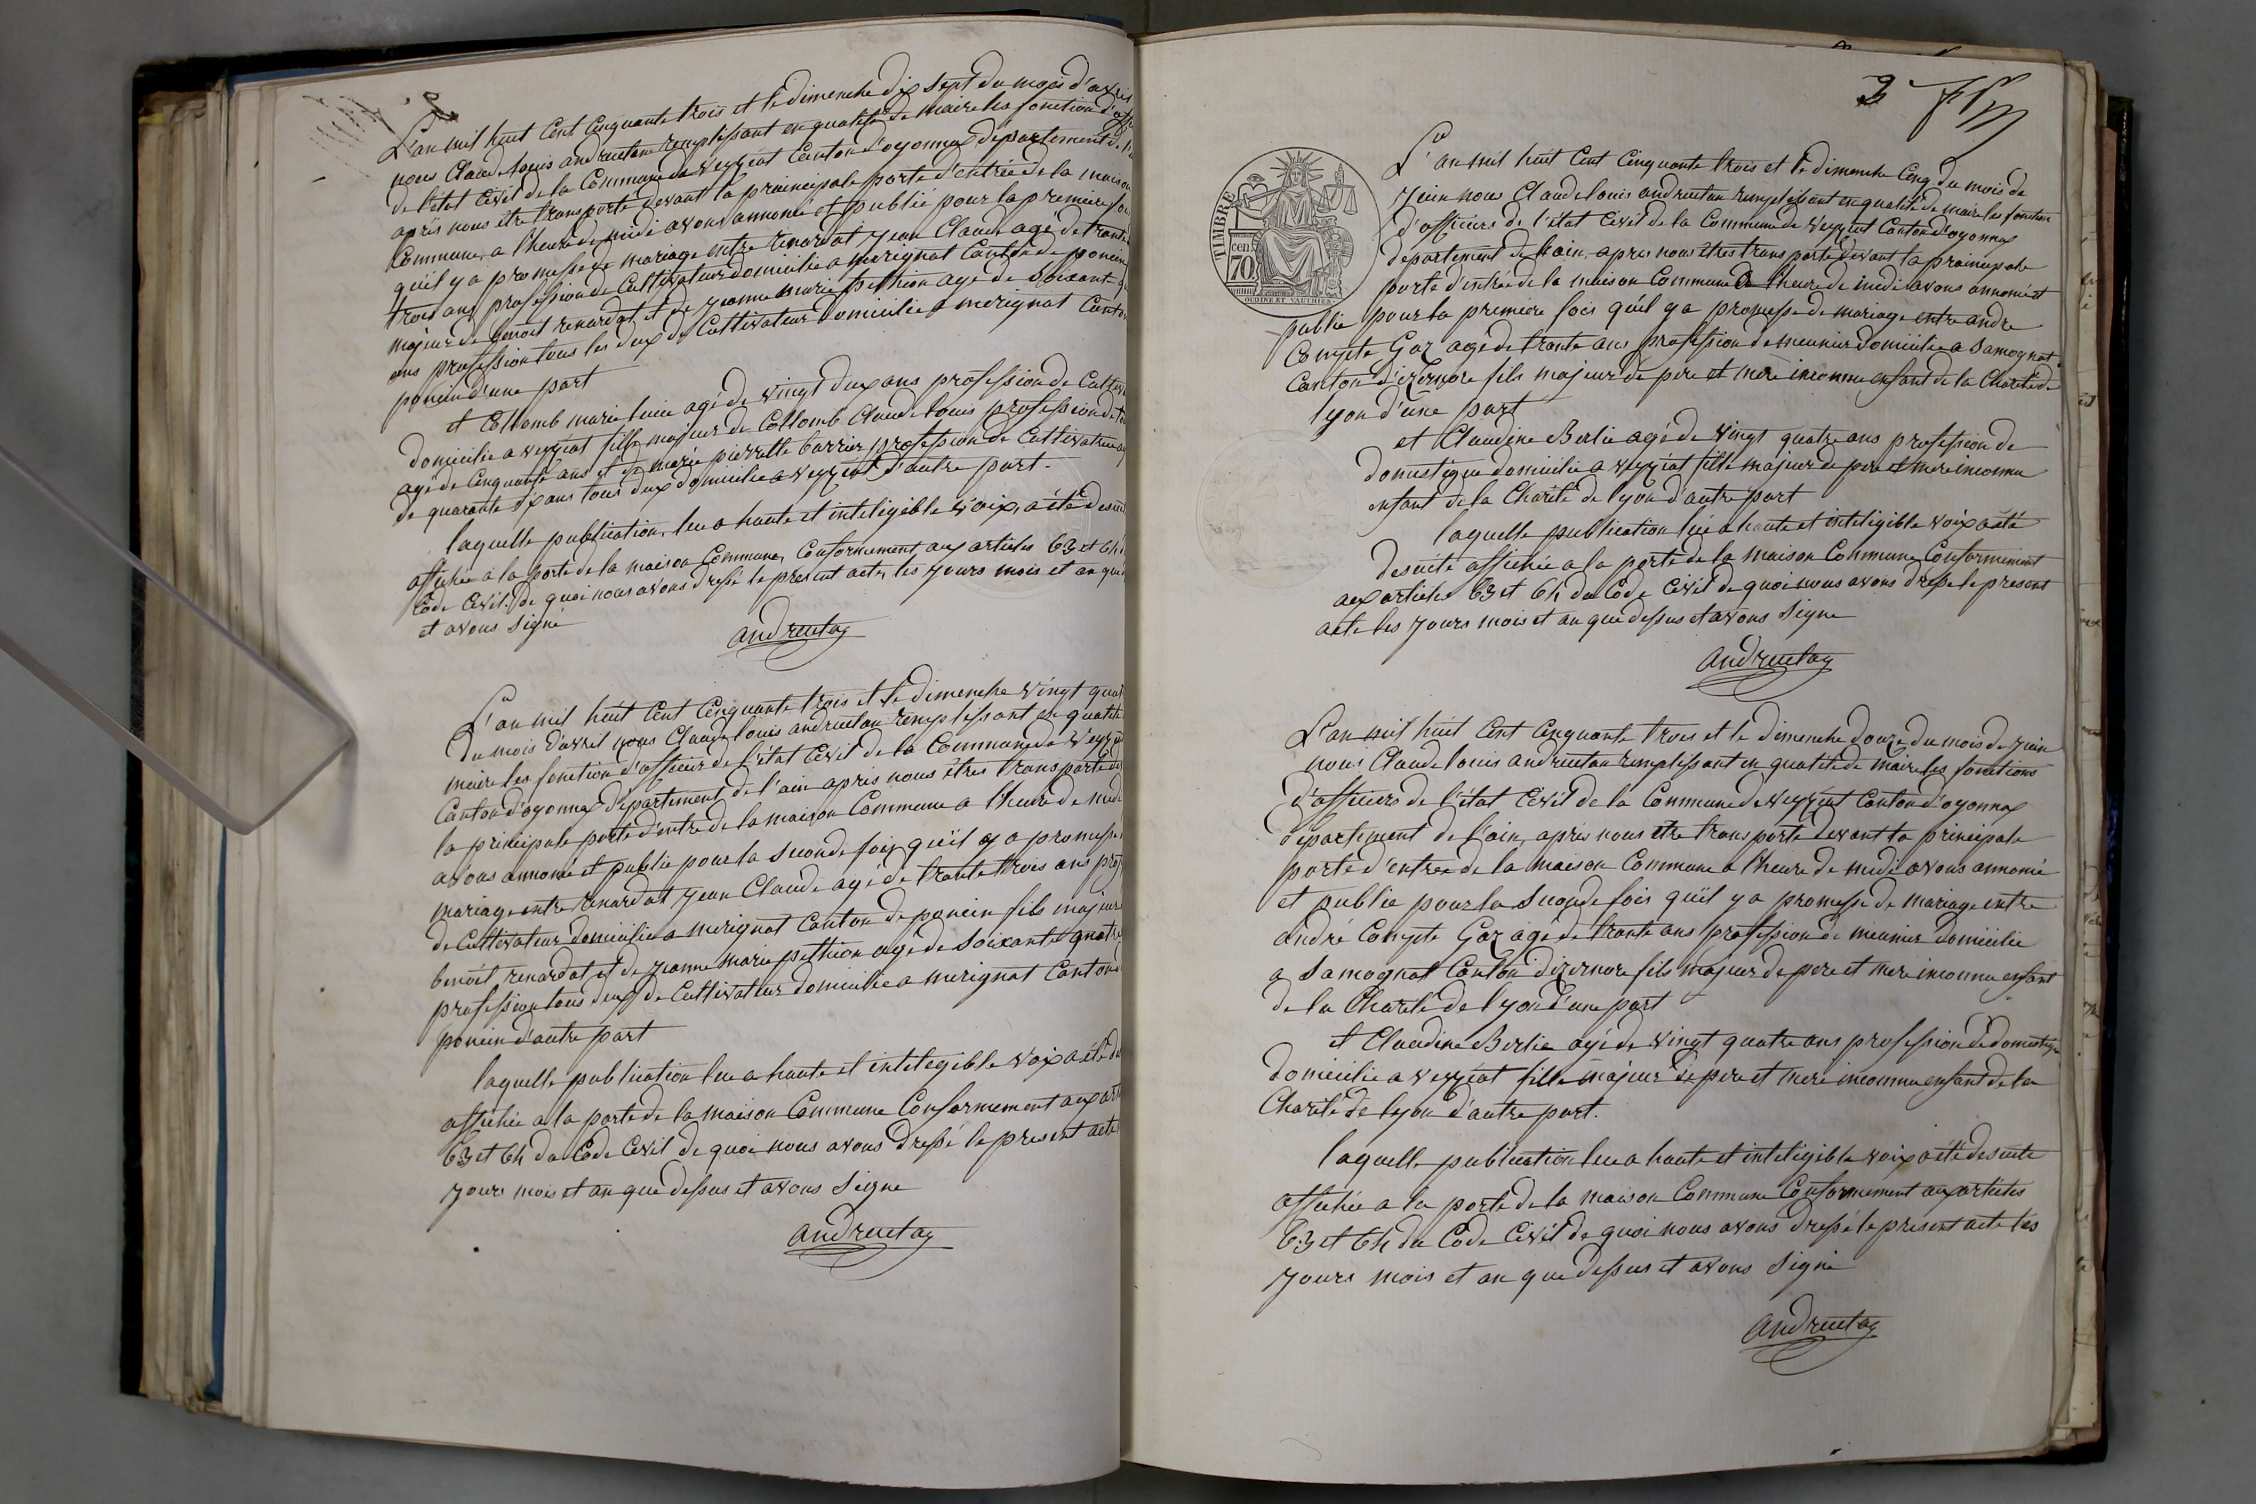 2
L'an mil huit Cent Cinquante trois et le dimenche dix sept du mois d'avril
nous Claude Louis andruetan remplissant en qualité de Maire les fonction d'off
de l'état Civil de la Commune de Veyziat Canton d'oyonnax departement de l'
après nous être transporté devant la prinicipale porte d'entrée de la maison
Commune, a l'heure de midi avons annoncé et publié pour la premiere foi
qu'il y a promesse de mariage entre renardat Jean Claude agé de trante
trois ans profession de Cultivateur domicilie a merignat Canton de poncin
majeur de benoit renardat et de Jeanne marie pethion agé de soixante
ans profession tous les deux de Cultivateur domicilie a merignat Canton
poncin d'une part
et Collomb marie luice agé de vingt deux ans profession de Cultiv
domicilie a veyziat fille majeur de Collomb Claude louis profession de
agé de Cinquante ans et de marie pierrette barrier profession de Cultivateur
de quarante six ans tous deux domicilie a veyziat d'autre part.
laquelle publication, lue a haute et inteligible voix, a été desuite
affichée a la porte de la maison Commune, Conformement aux articles 63 et 64
Code Civil. De quoi nous avons dressé le present acte, les jours mois et an que
et avons signé
andruetan
L'an mil huit Cent Cinquante trois et le dimenche vingt quat
du mois d'avril nous Claude louis andruetan remplissant en qualité
maire les fonction d'officier de l'état Civil de la Commune de Veyzi
Canton d'oyonnax département de l'ain après nous êtres transporté de
la principale porte d'entre de la maison Commune a l'heure de midi
avons annoncé et publie pour la seconde fois qu'il y a promesse
mariage entre renardat Jean Claude agé de trante trois ans prof
de Cultivateur domicilie a merignat Canton de poncin fils majeur
benoit renardat et de Jeanne Marie pethion agé de soixante quatre
profession tous deux de Cultivateur domicilie a merignat Canton
poncin d'autre part
laquelle publication lue a haute et intelegible voix a été de
affichée a la porte de la maison Commune Conformement aux art
63 et 64 du Code Civil de quoi nous avons dressé le present acte
jours mois et an que dessus et avons signe
andruetan
3
TIMBRE
cen
70
OUDINE ET VAUTHIER
L'an mil huit Cent Cinquante trois et le dimenche Cinq du mois de
Juin nous Claude louis andruetan remplissant en qualité de maire les fonction
d'officiers de l'état Civil de la Commune de Veyziat Canton d'oyonnax
departement de l'ain, apres nous êtres transporté devant la prinicipale
porte d'entrée de la maison Commune a l'heure de midi avons annoncé et
publie pour la premiere fois qu'il y a promesse de mariage entre andre
Compte Gaz agé de trante ans profession de meunier domicilie a Samognat
Canton d'izernore fils majeur de pere et mere inconnu enfant de la Charité de
lyon d'une part
et Claudine Berlie agé de vingt quatre ans profession de
domestique domicilie a veyziat fille majeur de pere et mere inconnu
enfant de la Charité de lyon d'autre part
laquelle publication lue a haute et inteligible voix a été
desuite affichée a la porte de la maison Commune Conformement
aux articles 63 et 64 du Code Civil de quoi nous avons dresse le present
acte les jours mois et an que dessus et avons signe
andruetan
L'an mil huit Cent Cinquante trois et le dimenche douze du mois de Juin
nous Claude louis andruetan remplissant en qualité de maire les fonctions
d'officiers de l'état Civil de la Commune de veyziat Canton d'oyonnax
département de l'ain, après nous etre transporte devant la principale
porte d'entrée de la maison Commune a l'heure de midi avons annoncé
et publie pour la seconde fois qu'il y a promesse de mariage entre
andré Compte Gaz agé de trante ans profession de meunier domicilie
a Samognat Canton d'izernore fils majeur de pere et mere inconnu enfant
de la Charité de lyon d'une part
et Claudine Berlie agé de vingt quatre ans profession de domestique
domicilie a veyziat fille majeur de pere et mere inconnu enfant de la
Charité de lyon d'autre part.
laquelle publication lue a haute et inteligible voix a été desuite
affichée a la porte de la maison Commune Conformément aux articles
63 et 64 du Code Civil de quoi nous avons dressé le present acte les
jours mois et an que dessus et avons signé
andruetan